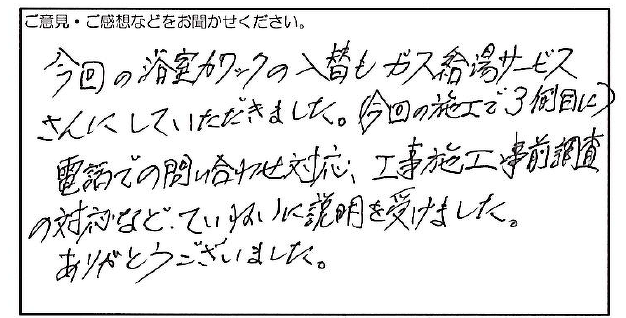 ご意見・ご感想などをお聞かせください。
今回の浴室カワックの入替もガス給湯サービス
さんにしていただきました。(今回の施工で3例目に)
電話での問い合わせ対応、工事施工事前調査
の対応など、ていねいに説明を受けました。
ありがとうございました。